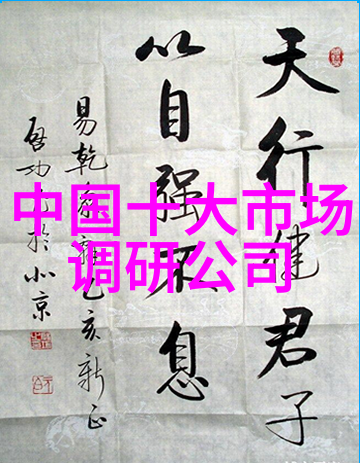 中国十大市场
调研公司
天行健君子
以自强不息
易乾象辞乙亥新正
启功 于北京